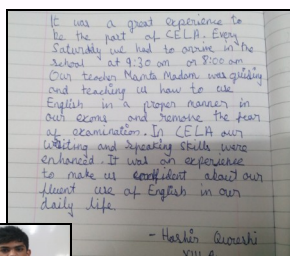 It was a great experience to
be the part of CELA. Every
Saturday we had to arrive in the
school at 9:30 am or 8:00 am
Our teacher Mamta Madam was guiding
and teaching us how to use
English in a proper manner in
our exams and remove the fear
of examination. In CELA our
writing and speaking skills were
enhanced. It was an experience
to make us confident about our
fluent use of English in our
daily life
- Harshir Qureshi
VIII A